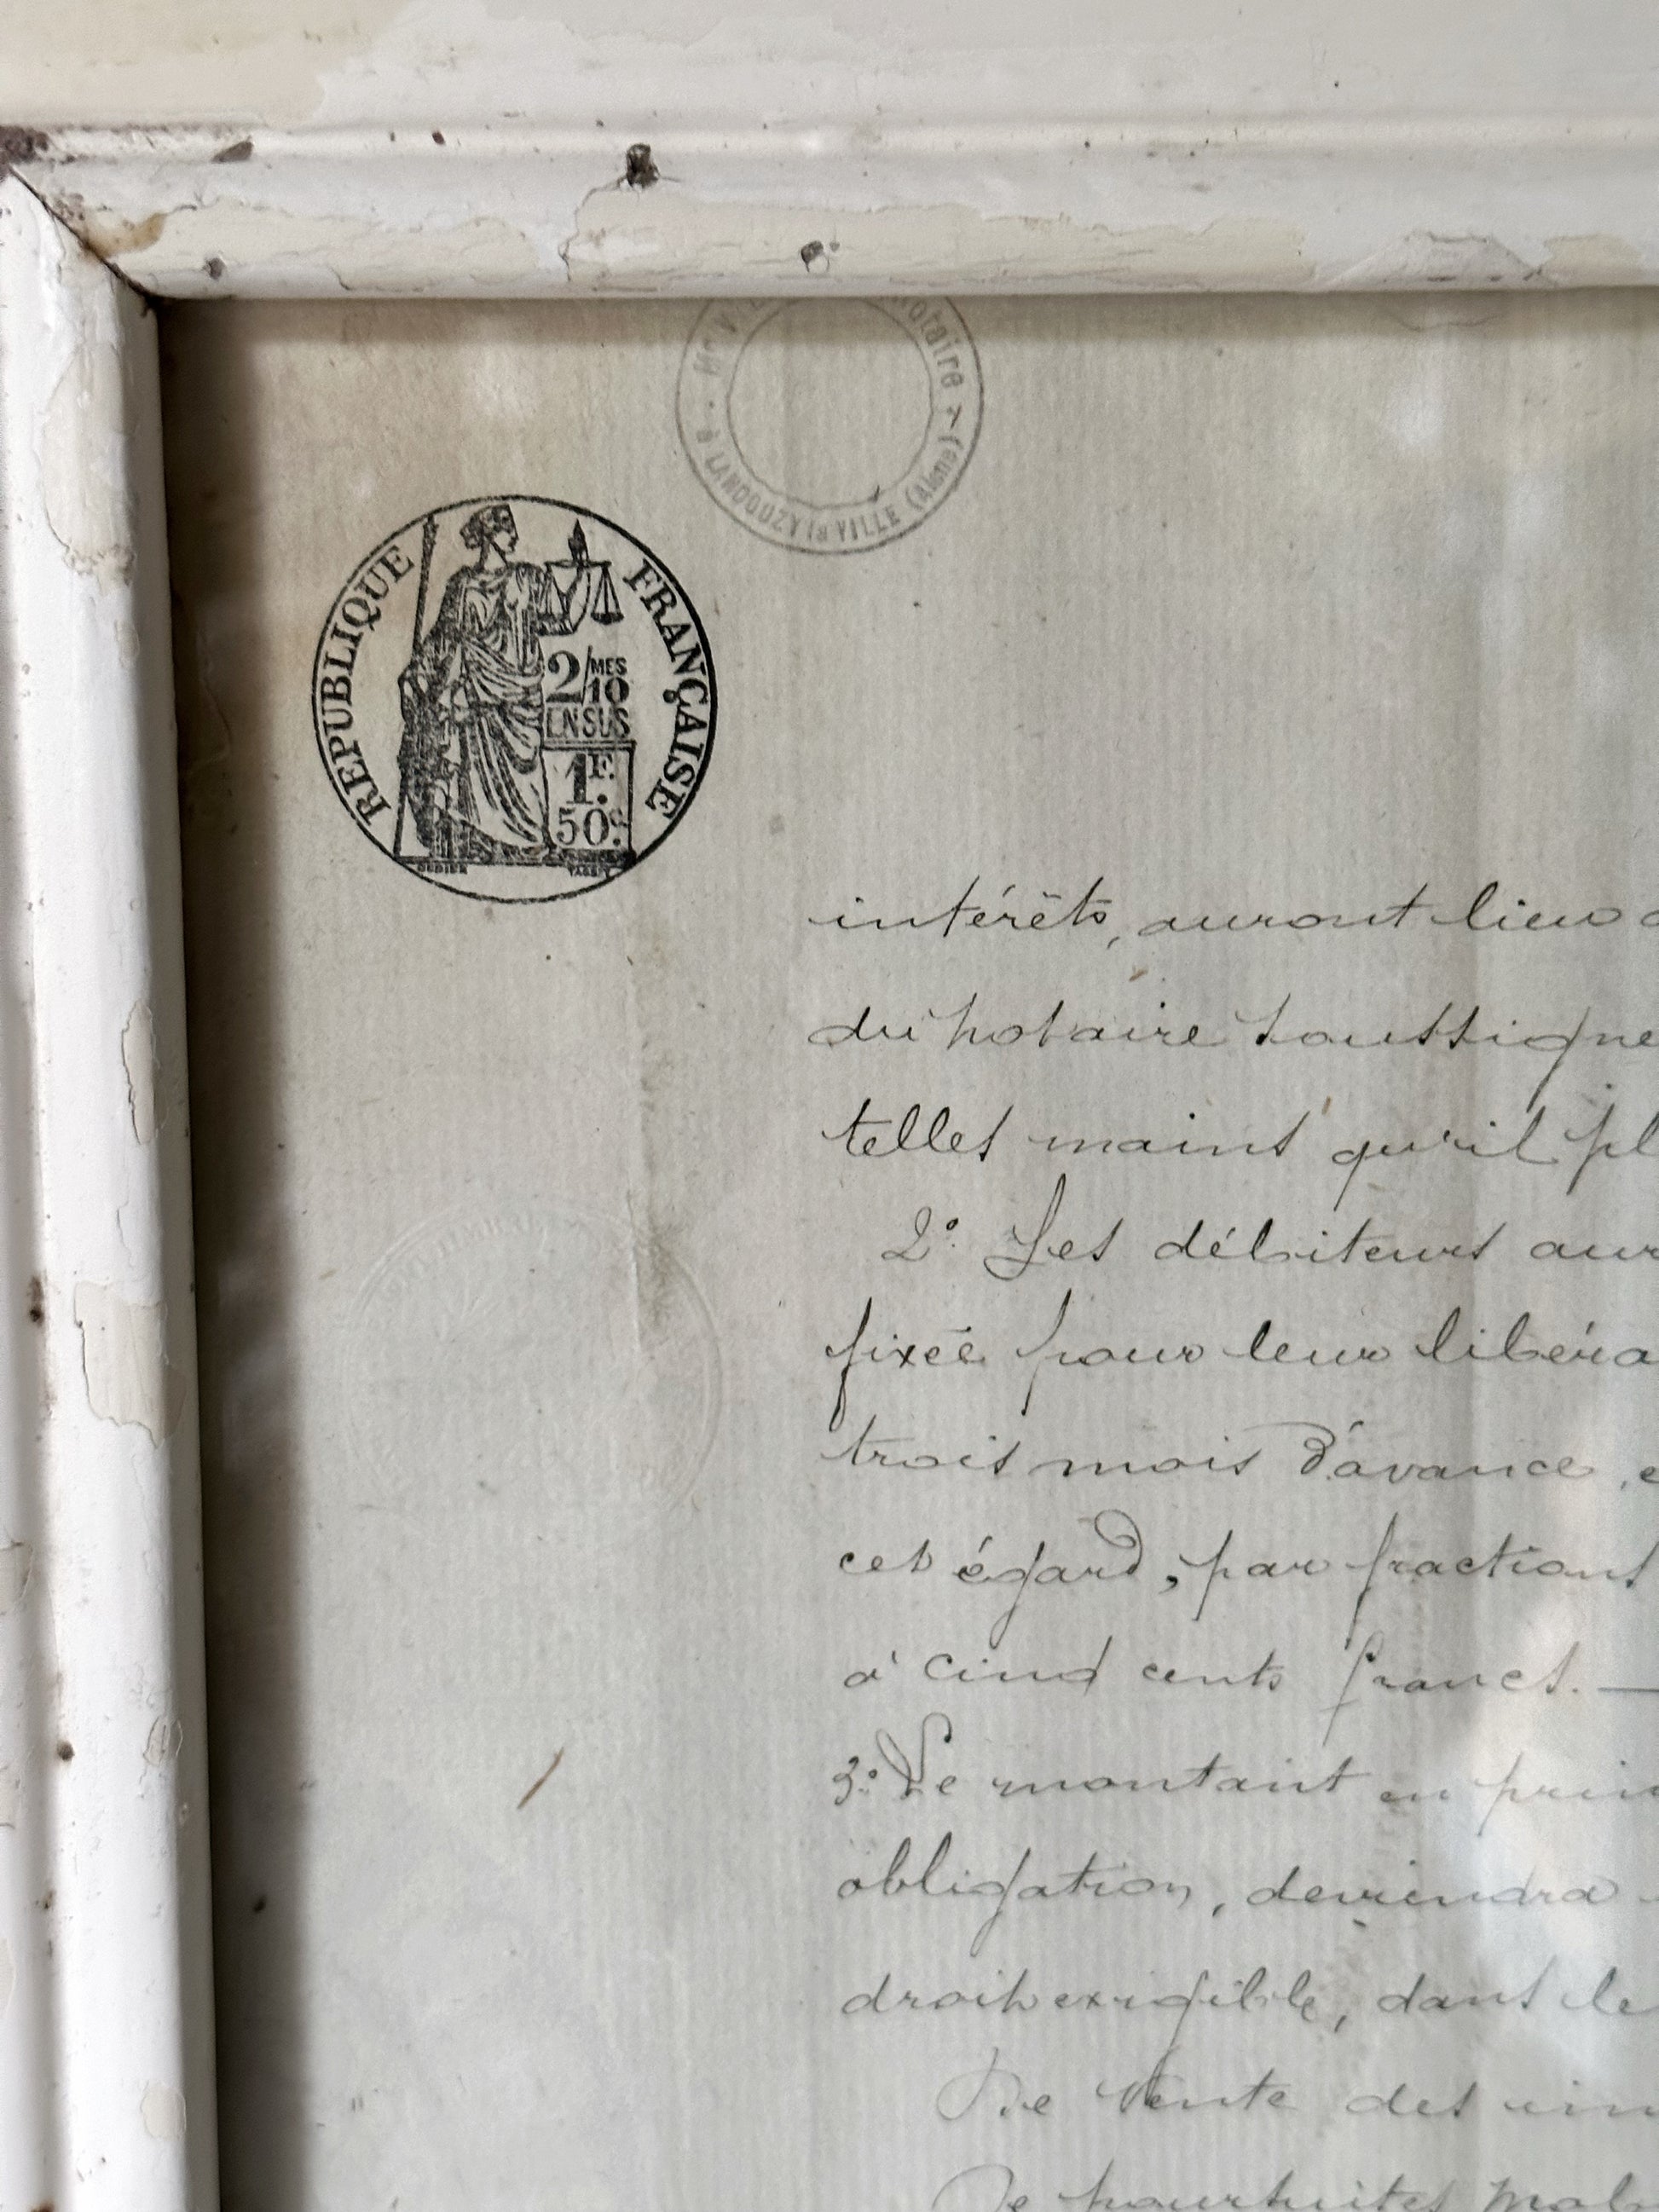 Notaire
à LANDOUZY la VILLE (Aisne)
REPUBLIQUE FRANÇAISE
2/10 MES
EN SUS
1F.
50c.
TASSET
intérêts, auront lieu
du notaire soussigné
telles mains qu'il pl
2° Les débiteurs aur
fixée pour leur libéra
trois mois d'avance, e
cet égard, par fractions
à cinq cents francs. —
3° Le montant en prin
obligation, deviendra
droit exigible, dans le
De vente des im
De poursuites